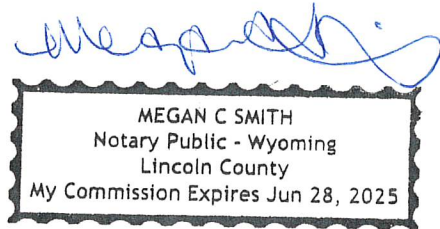 MEGAN C SMITH
Notary Public - Wyoming
Lincoln County
My Commission Expires Jun 28, 2025